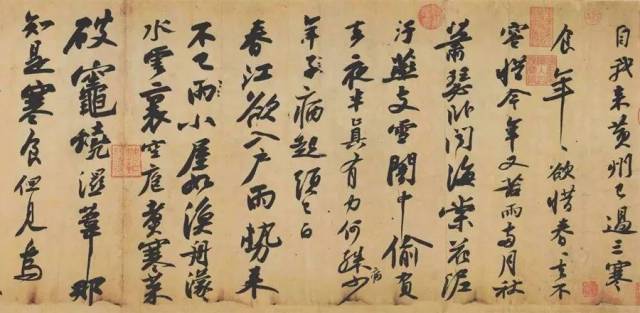 自我来黄州已過三寒
食年、欲惜春、去不
容惜今年又苦雨兩月秋
蕭瑟卧聞海棠花泥
汙燕支雪闇中偷負
去夜半真有力何殊病少
年子病起頭已白
春江欲入户雨勢来
不已雨小屋如漁舟濛
水雲裏空庖煮寒菜
破竈燒濕葦那
知是寒食但見烏